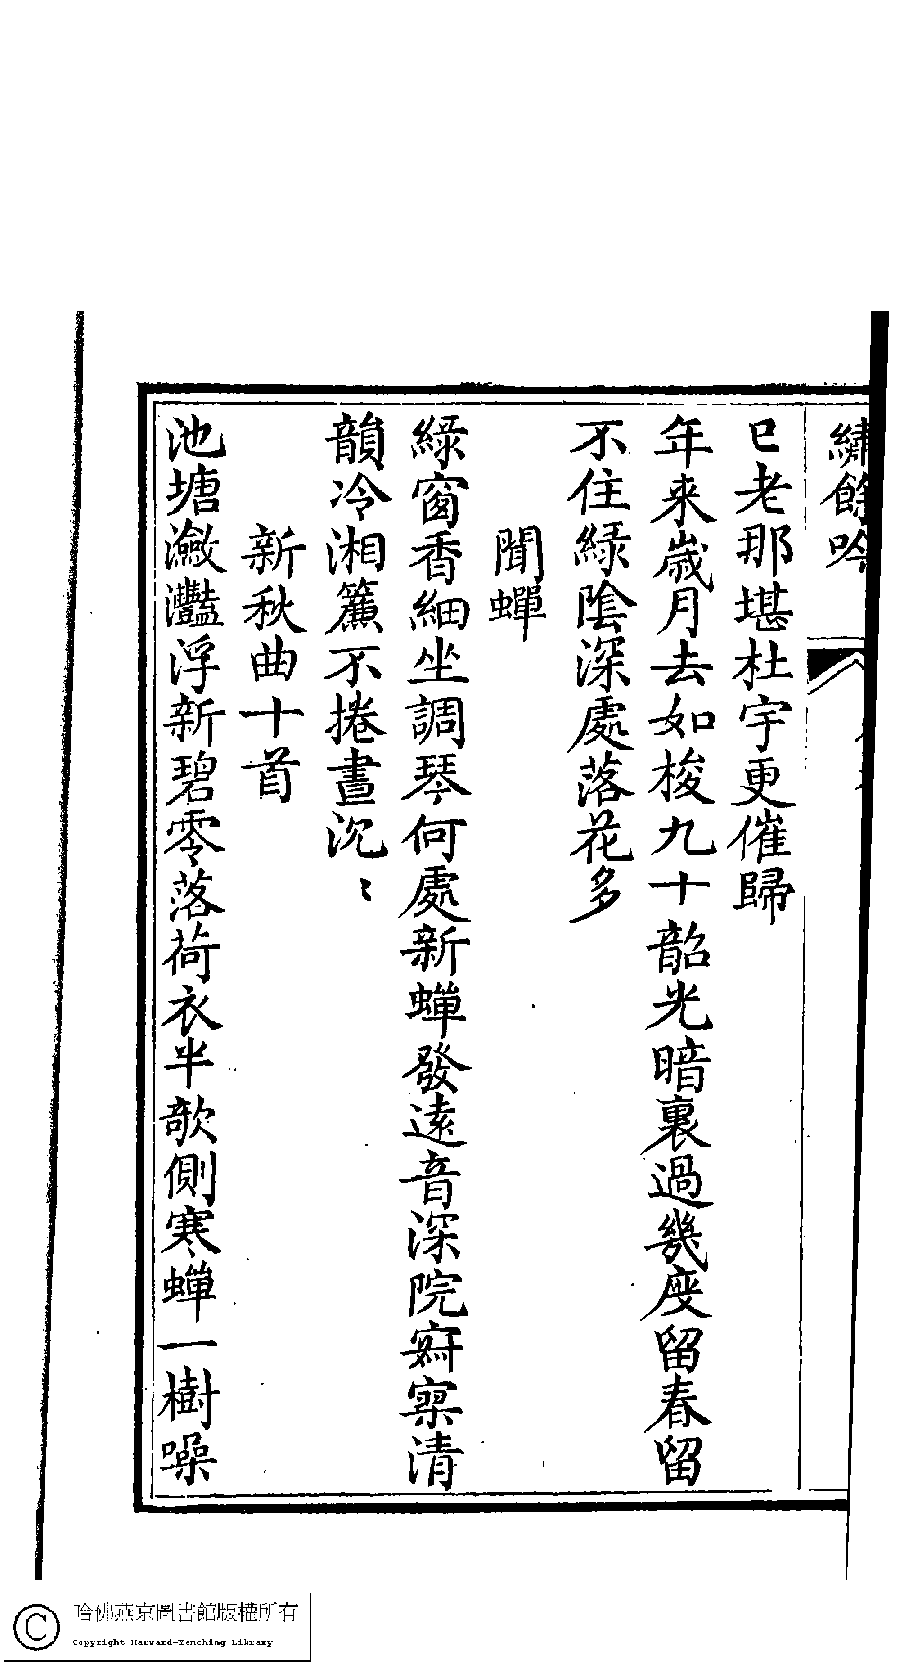 繡餘吟
已老那堪杜宇更催歸
年來歲月去如梭九十韶光暗裏過幾度留春留
不住綠陰深處落花多
聞蟬
綠窗香細坐調琴何處新蟬發遠音深院寂寞清
韻冷湘簾不捲晝沉〻
新秋曲十首
池塘瀲灩浮新碧零落荷衣半欹側寒蟬一樹噪
哈佛燕京圖書館版權所有
Copyright Harvard-Yenching Library